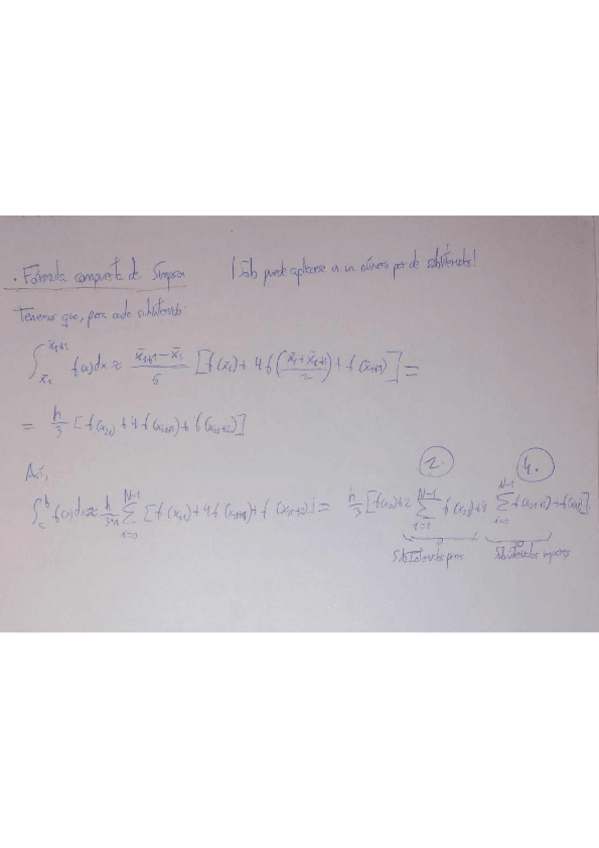 . Fórmula compuesta de Simpson ¡Sólo puede aplicarse a un número par de subintervalos!
Tenemos que, para cada subintervalo:
∫_{x̄_i}^{x̄_{i+1}} f(x)dx ≈ (x̄_{i+1} - x̄_i)/6 [f(x̄_i) + 4f((x̄_i + x̄_{i+1})/2) + f(x̄_{i+1})] =
= h/3 [f(x_{2i}) + 4f(x_{2i+1}) + f(x_{2i+2})]
Así,
2. 4.
∫_a^b f(x)dx ≈ h/3 ∑_{i=0}^{N-1} [f(x_{2i}) + 4f(x_{2i+1}) + f(x_{2i+2})] = h/3 [f(x_0) + 2 ∑_{i=1}^{N-1} f(x_{2i}) + 4 ∑_{i=0}^{N-1} f(x_{2i+1}) + f(x_{2N})].
Subintervalos pares Subintervalos impares